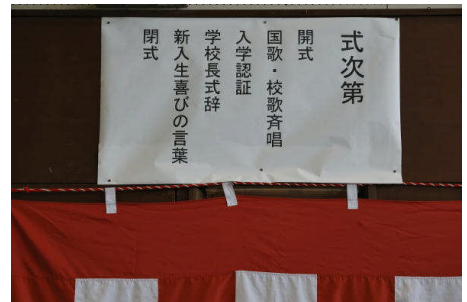 式次第
開式
国歌・校歌斉唱
入学認証
学校長式辞
新入生喜びの言葉
閉式